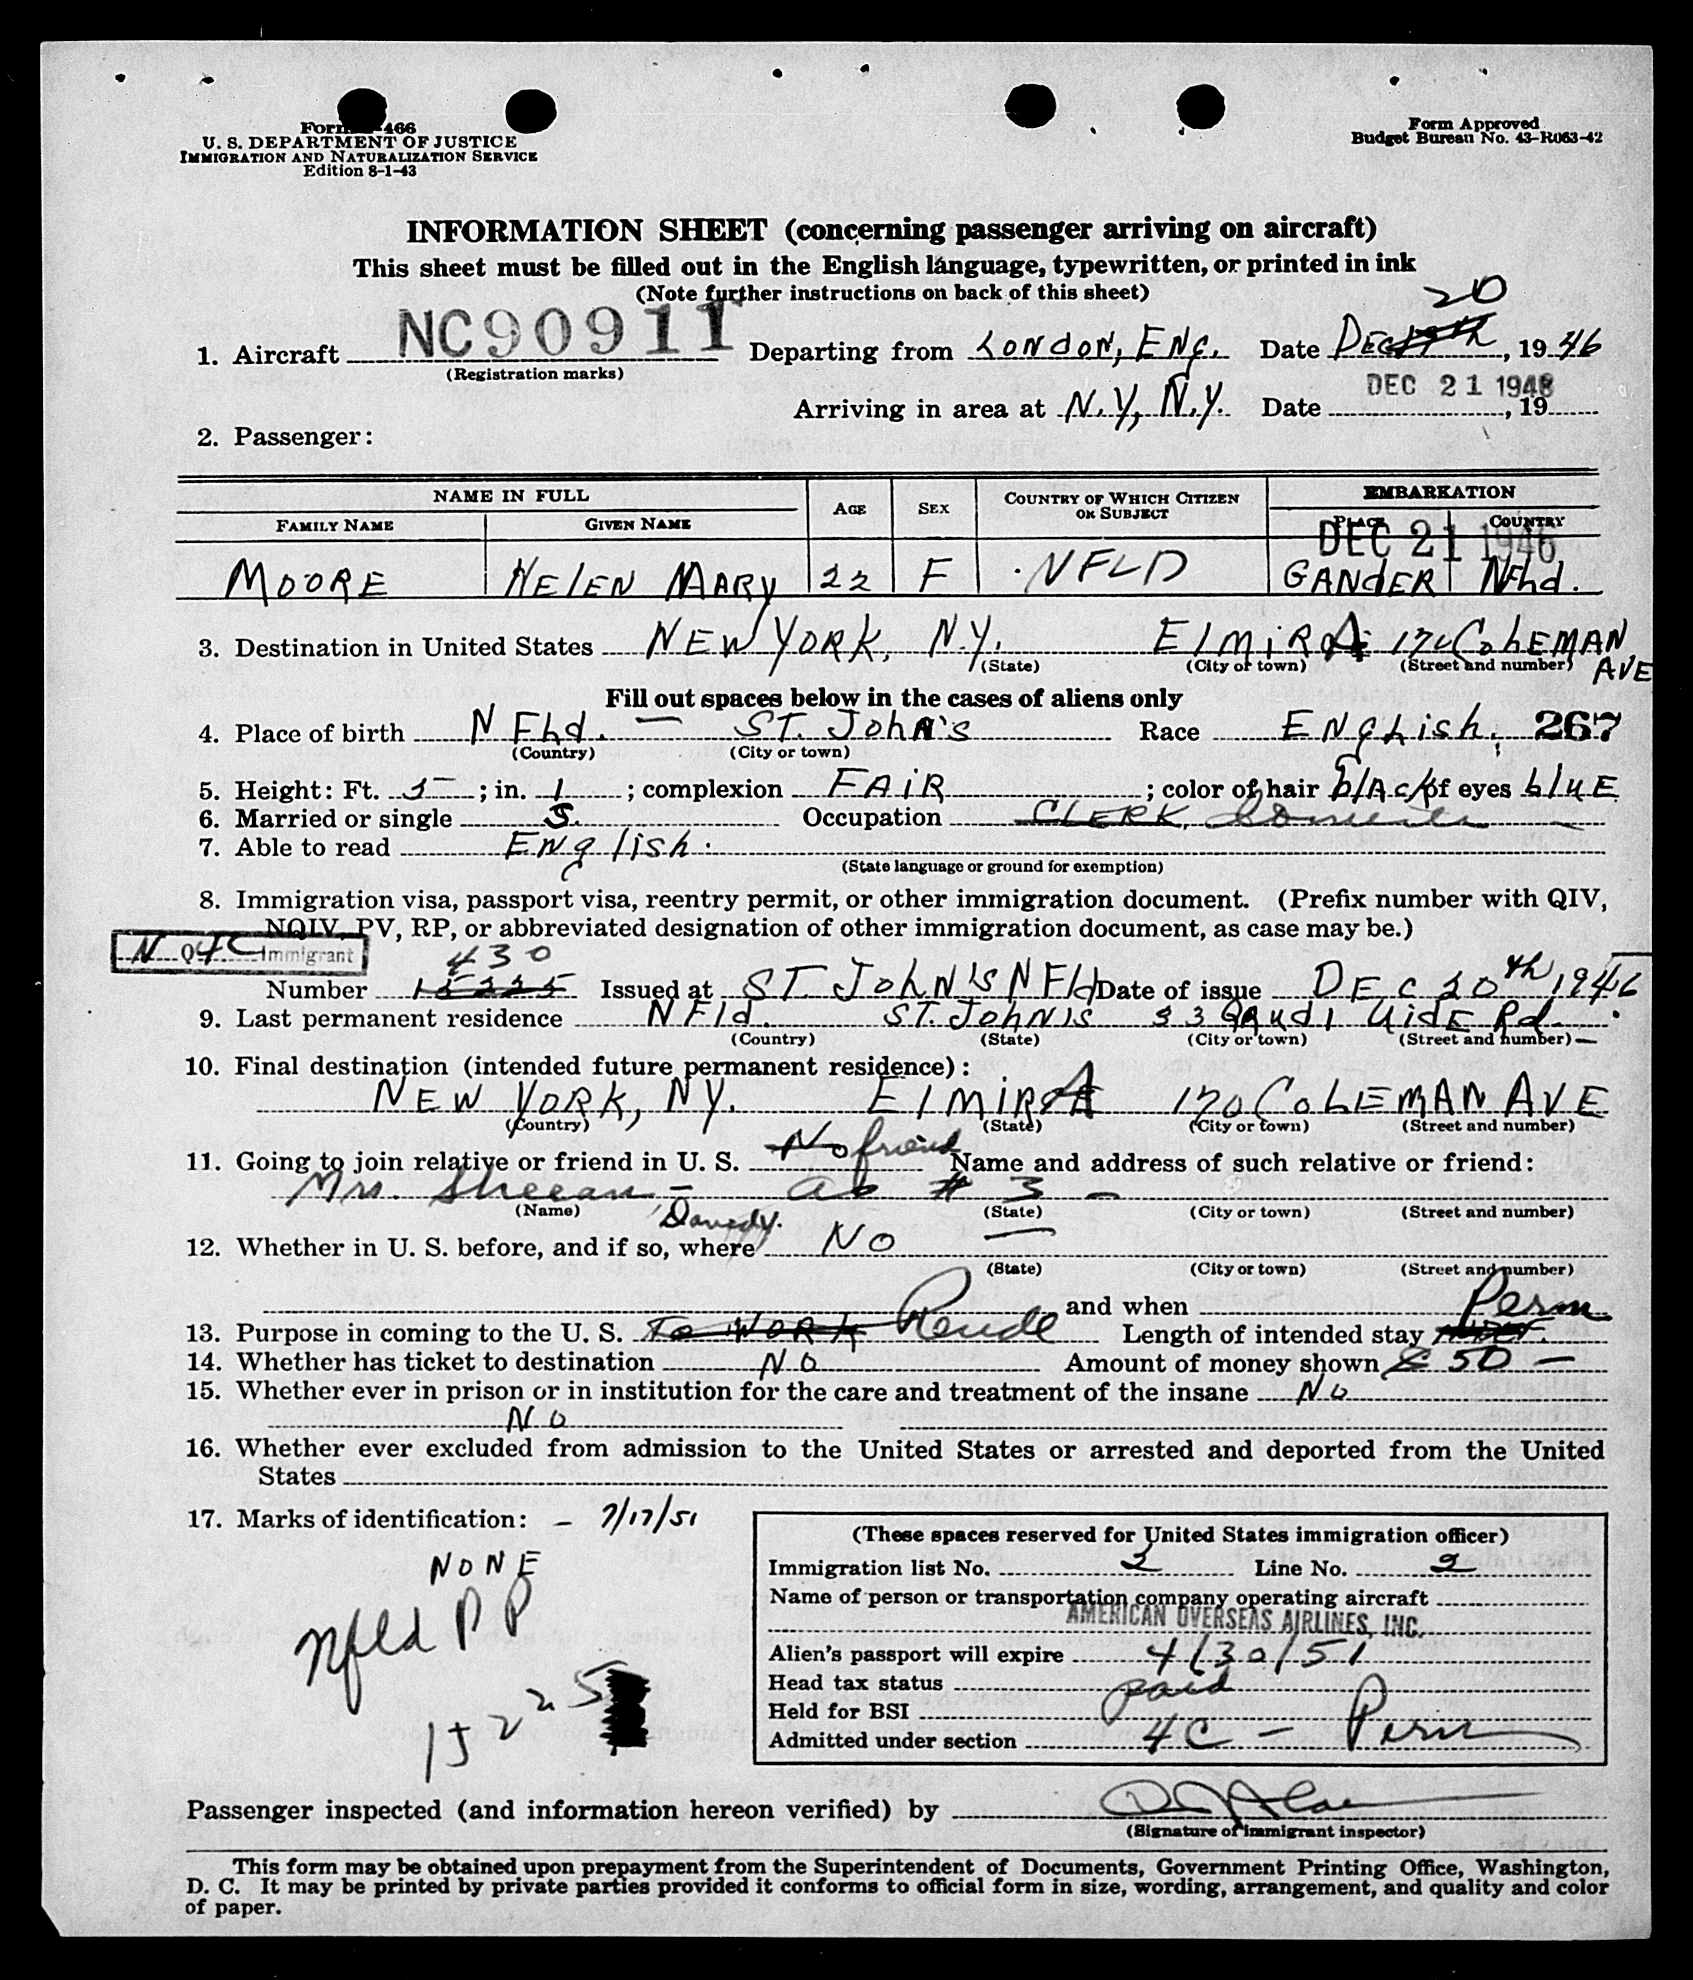 Form 466
U. S. DEPARTMENT OF JUSTICE
IMMIGRATION AND NATURALIZATION SERVICE
Edition 8-1-43
Form Approved
Budget Bureau No. 43-R063-42
INFORMATION SHEET (concerning passenger arriving on aircraft)
This sheet must be filled out in the English language, typewritten, or printed in ink
(Note further instructions on back of this sheet)
20
1. Aircraft NC90911 Departing from LONDON, ENG. Date DEC , 1946
(Registration marks)
DEC 21 1946
Arriving in area at N.Y, N.Y. Date , 19
2. Passenger:
NAME IN FULL AGE SEX COUNTRY OF WHICH CITIZEN OR SUBJECT EMBARKATION
FAMILY NAME GIVEN NAME PLACE COUNTRY
DEC 21 1946
MOORE HELEN MARY 22 F NFLD GANDER Nfld.
3. Destination in United States NEW YORK, N.Y. ElmiRA 170 ColEMAN AVE
(State) (City or town) (Street and number)
Fill out spaces below in the cases of aliens only
4. Place of birth NFld. — ST. John's Race ENglish. 267
(Country) (City or town)
5. Height: Ft. 5 ; in. 1 ; complexion FAiR ; color of hair blAck of eyes bluE
6. Married or single S. Occupation CLERK, Domestic
7. Able to read English.
(State language or ground for exemption)
8. Immigration visa, passport visa, reentry permit, or other immigration document. (Prefix number with QIV,
NQIV, PV, RP, or abbreviated designation of other immigration document, as case may be.)
N Q 4C Immigrant
430
Number 15225 Issued at ST. John'S NFld Date of issue DEC 20th 1946
9. Last permanent residence NFld. ST. John's 33 Rd.
(Country) (State) (City or town) (Street and number)
10. Final destination (intended future permanent residence):
NEW YORK, NY. ElmiRA 170 ColEMAN AVE
(Country) (State) (City or town) (Street and number)
11. Going to join relative or friend in U. S. No friend Name and address of such relative or friend:
Mrs. Sheean - as # 3 -
(Name) (State) (City or town) (Street and number)
12. Whether in U. S. before, and if so, where NO —
(State) (City or town) (Street and number)
and when
13. Purpose in coming to the U. S. To WORK Reside Length of intended stay Perm
14. Whether has ticket to destination NO Amount of money shown $ 50 —
15. Whether ever in prison or in institution for the care and treatment of the insane No
No
16. Whether ever excluded from admission to the United States or arrested and deported from the United
States
17. Marks of identification: - 7/17/51
NONE
Nfld PP
15225
(These spaces reserved for United States immigration officer)
Immigration list No. 2 Line No. 2
Name of person or transportation company operating aircraft
AMERICAN OVERSEAS AIRLINES, INC.
Alien's passport will expire 4/30/51
Head tax status paid
Held for BSI
Admitted under section 4C - Perm
Passenger inspected (and information hereon verified) by
(Signature of immigrant inspector)
This form may be obtained upon prepayment from the Superintendent of Documents, Government Printing Office, Washington,
D. C. It may be printed by private parties provided it conforms to official form in size, wording, arrangement, and quality and color
of paper.